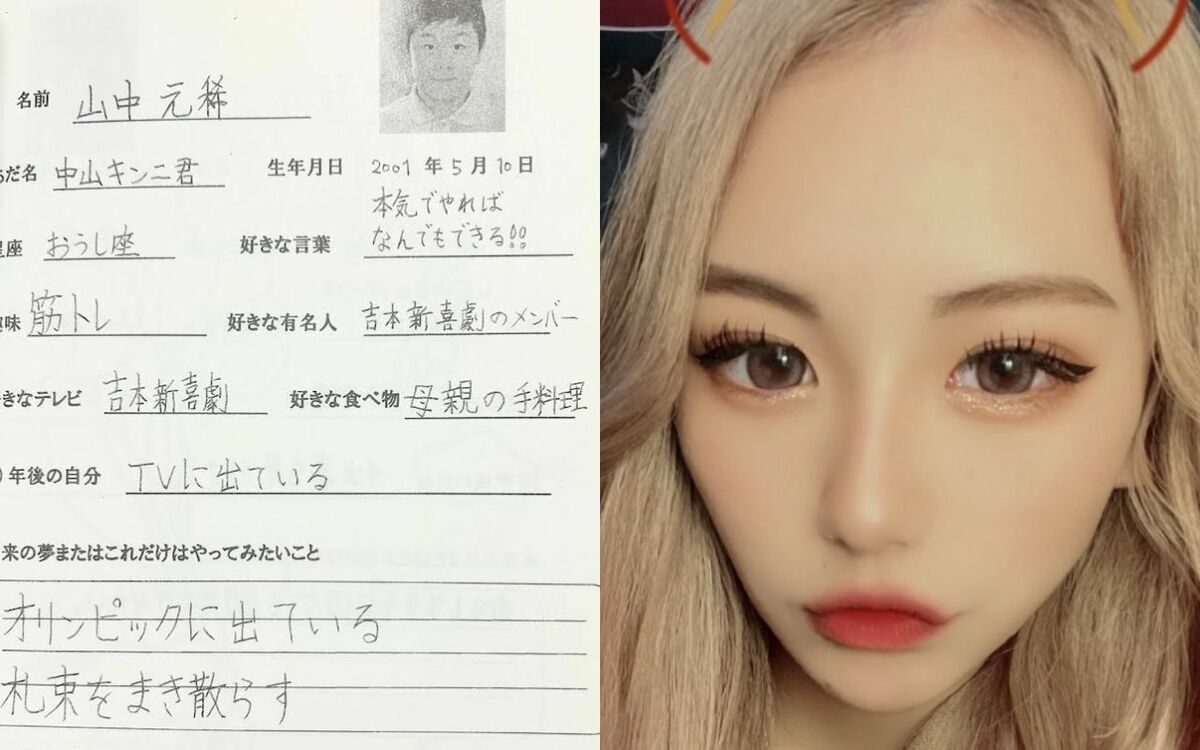 名前 山中元稀
だ名 中山キンニ君 生年月日 2001年5月10日
座 おうし座 好きな言葉 本気でやれば
なんでもできる!!
味 筋トレ 好きな有名人 吉本新喜劇のメンバー
きなテレビ 吉本新喜劇 好きな食べ物 母親の手料理
年後の自分 TVに出ている
来の夢またはこれだけはやってみたいこと
オリンピックに出ている
札束をまき散らす